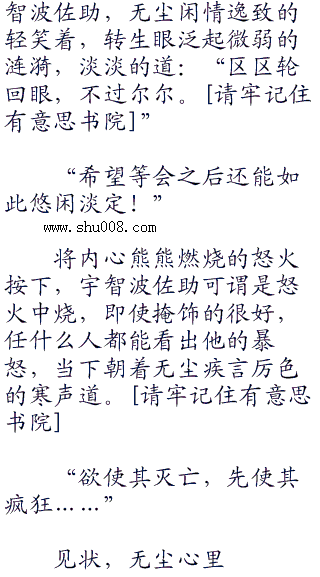 智波佐助，无尘闲情逸致的
轻笑着，转生眼泛起微弱的
涟漪，淡淡的道：“区区轮
回眼，不过尔尔。[请牢记住
有意思书院]”
“希望等会之后还能如
此悠闲淡定！”
www.shu008.com
将内心熊熊燃烧的怒火
按下，宇智波佐助可谓是怒
火中烧，即使掩饰的很好，
任什么人都能看出他的暴
怒，当下朝着无尘疾言厉色
的寒声道。[请牢记住有意思
书院]
“欲使其灭亡，先使其
疯狂……”
见状，无尘心里